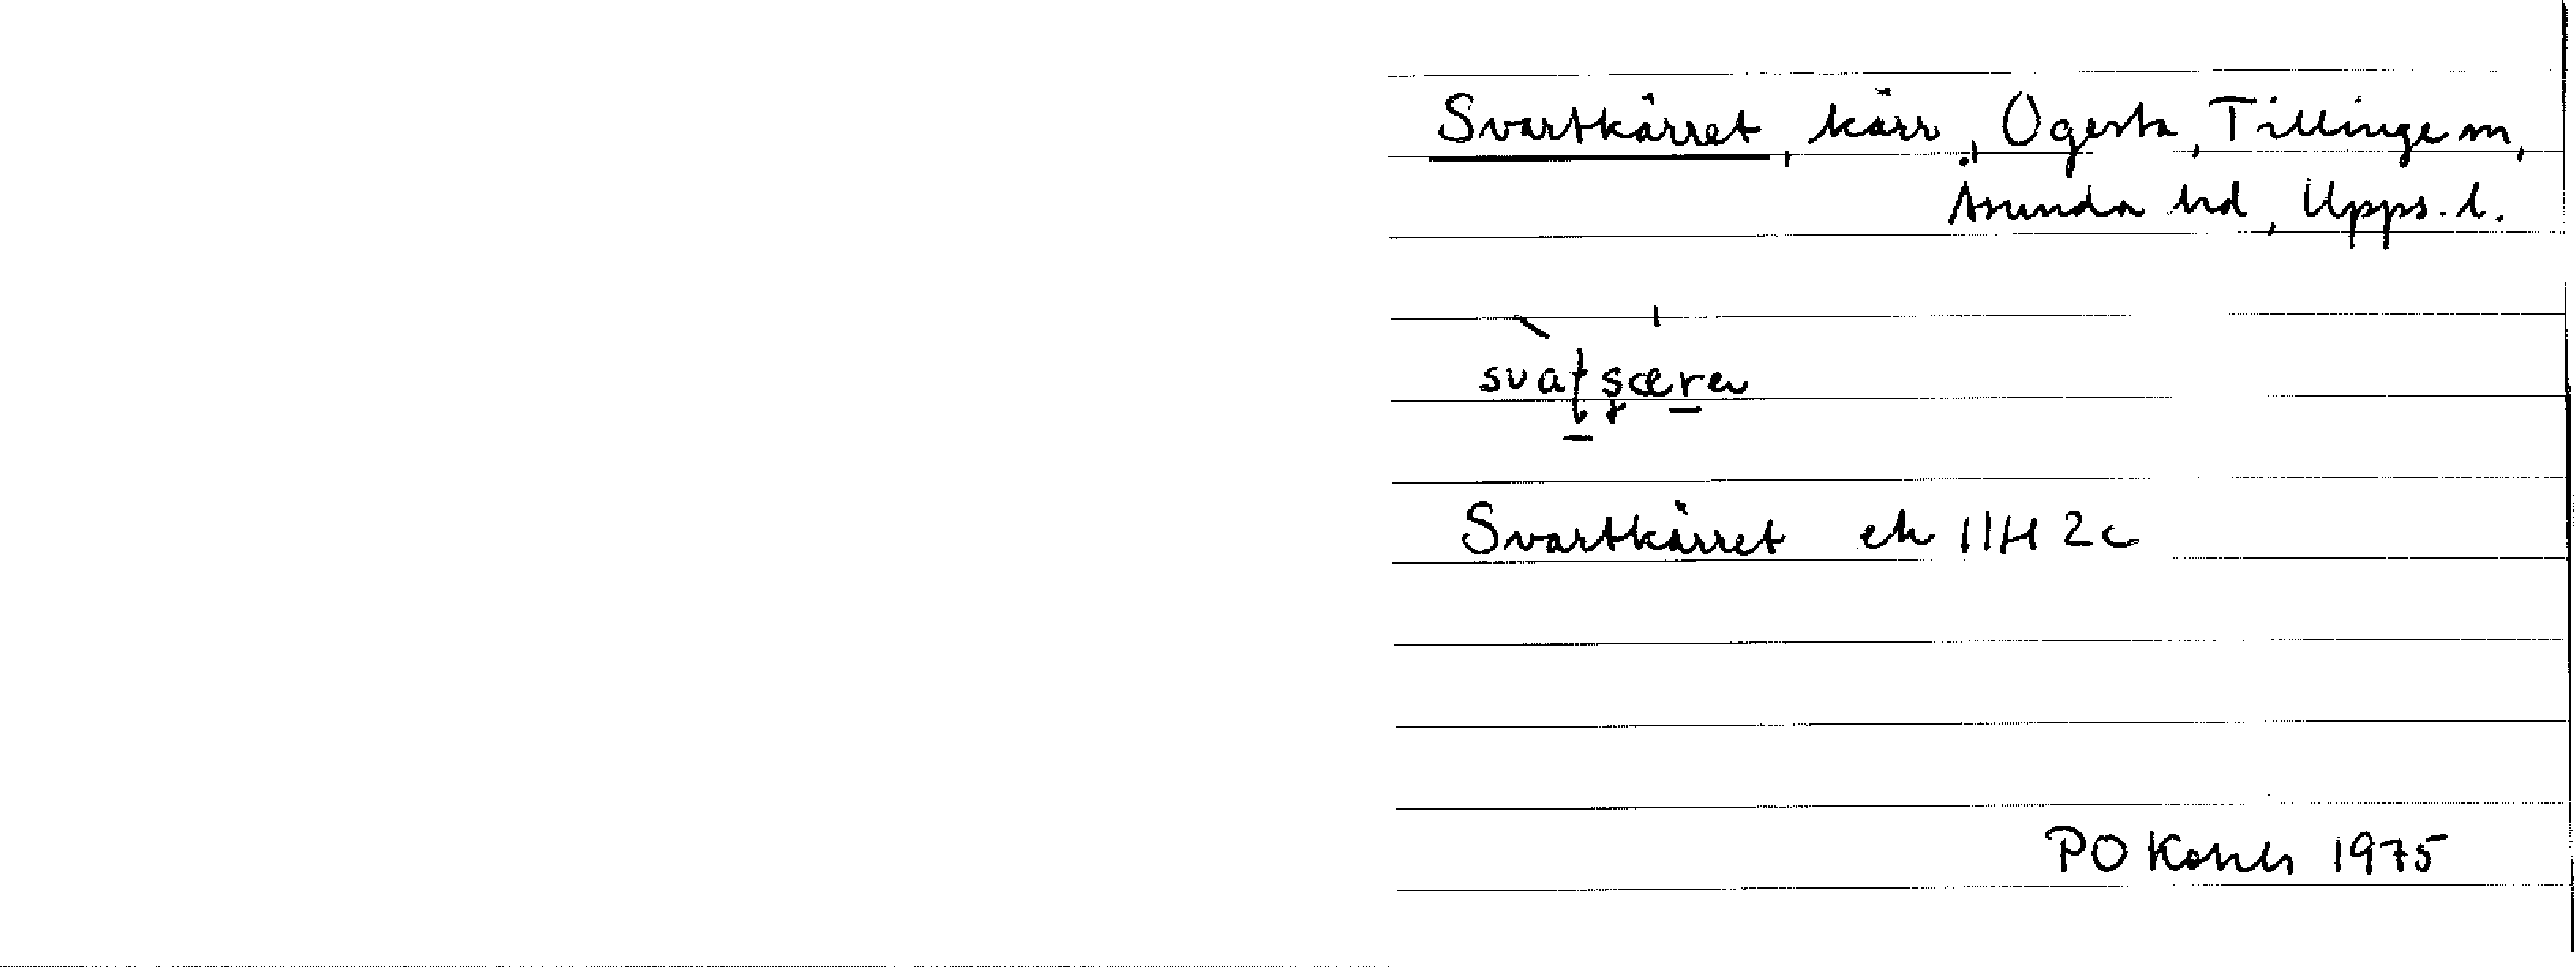 Svartkärret, kärr, Ogesta, Tillinge sn,
Åsunda hd, Upps. l.
Svartkärret ek 11H 2c
PO 1975